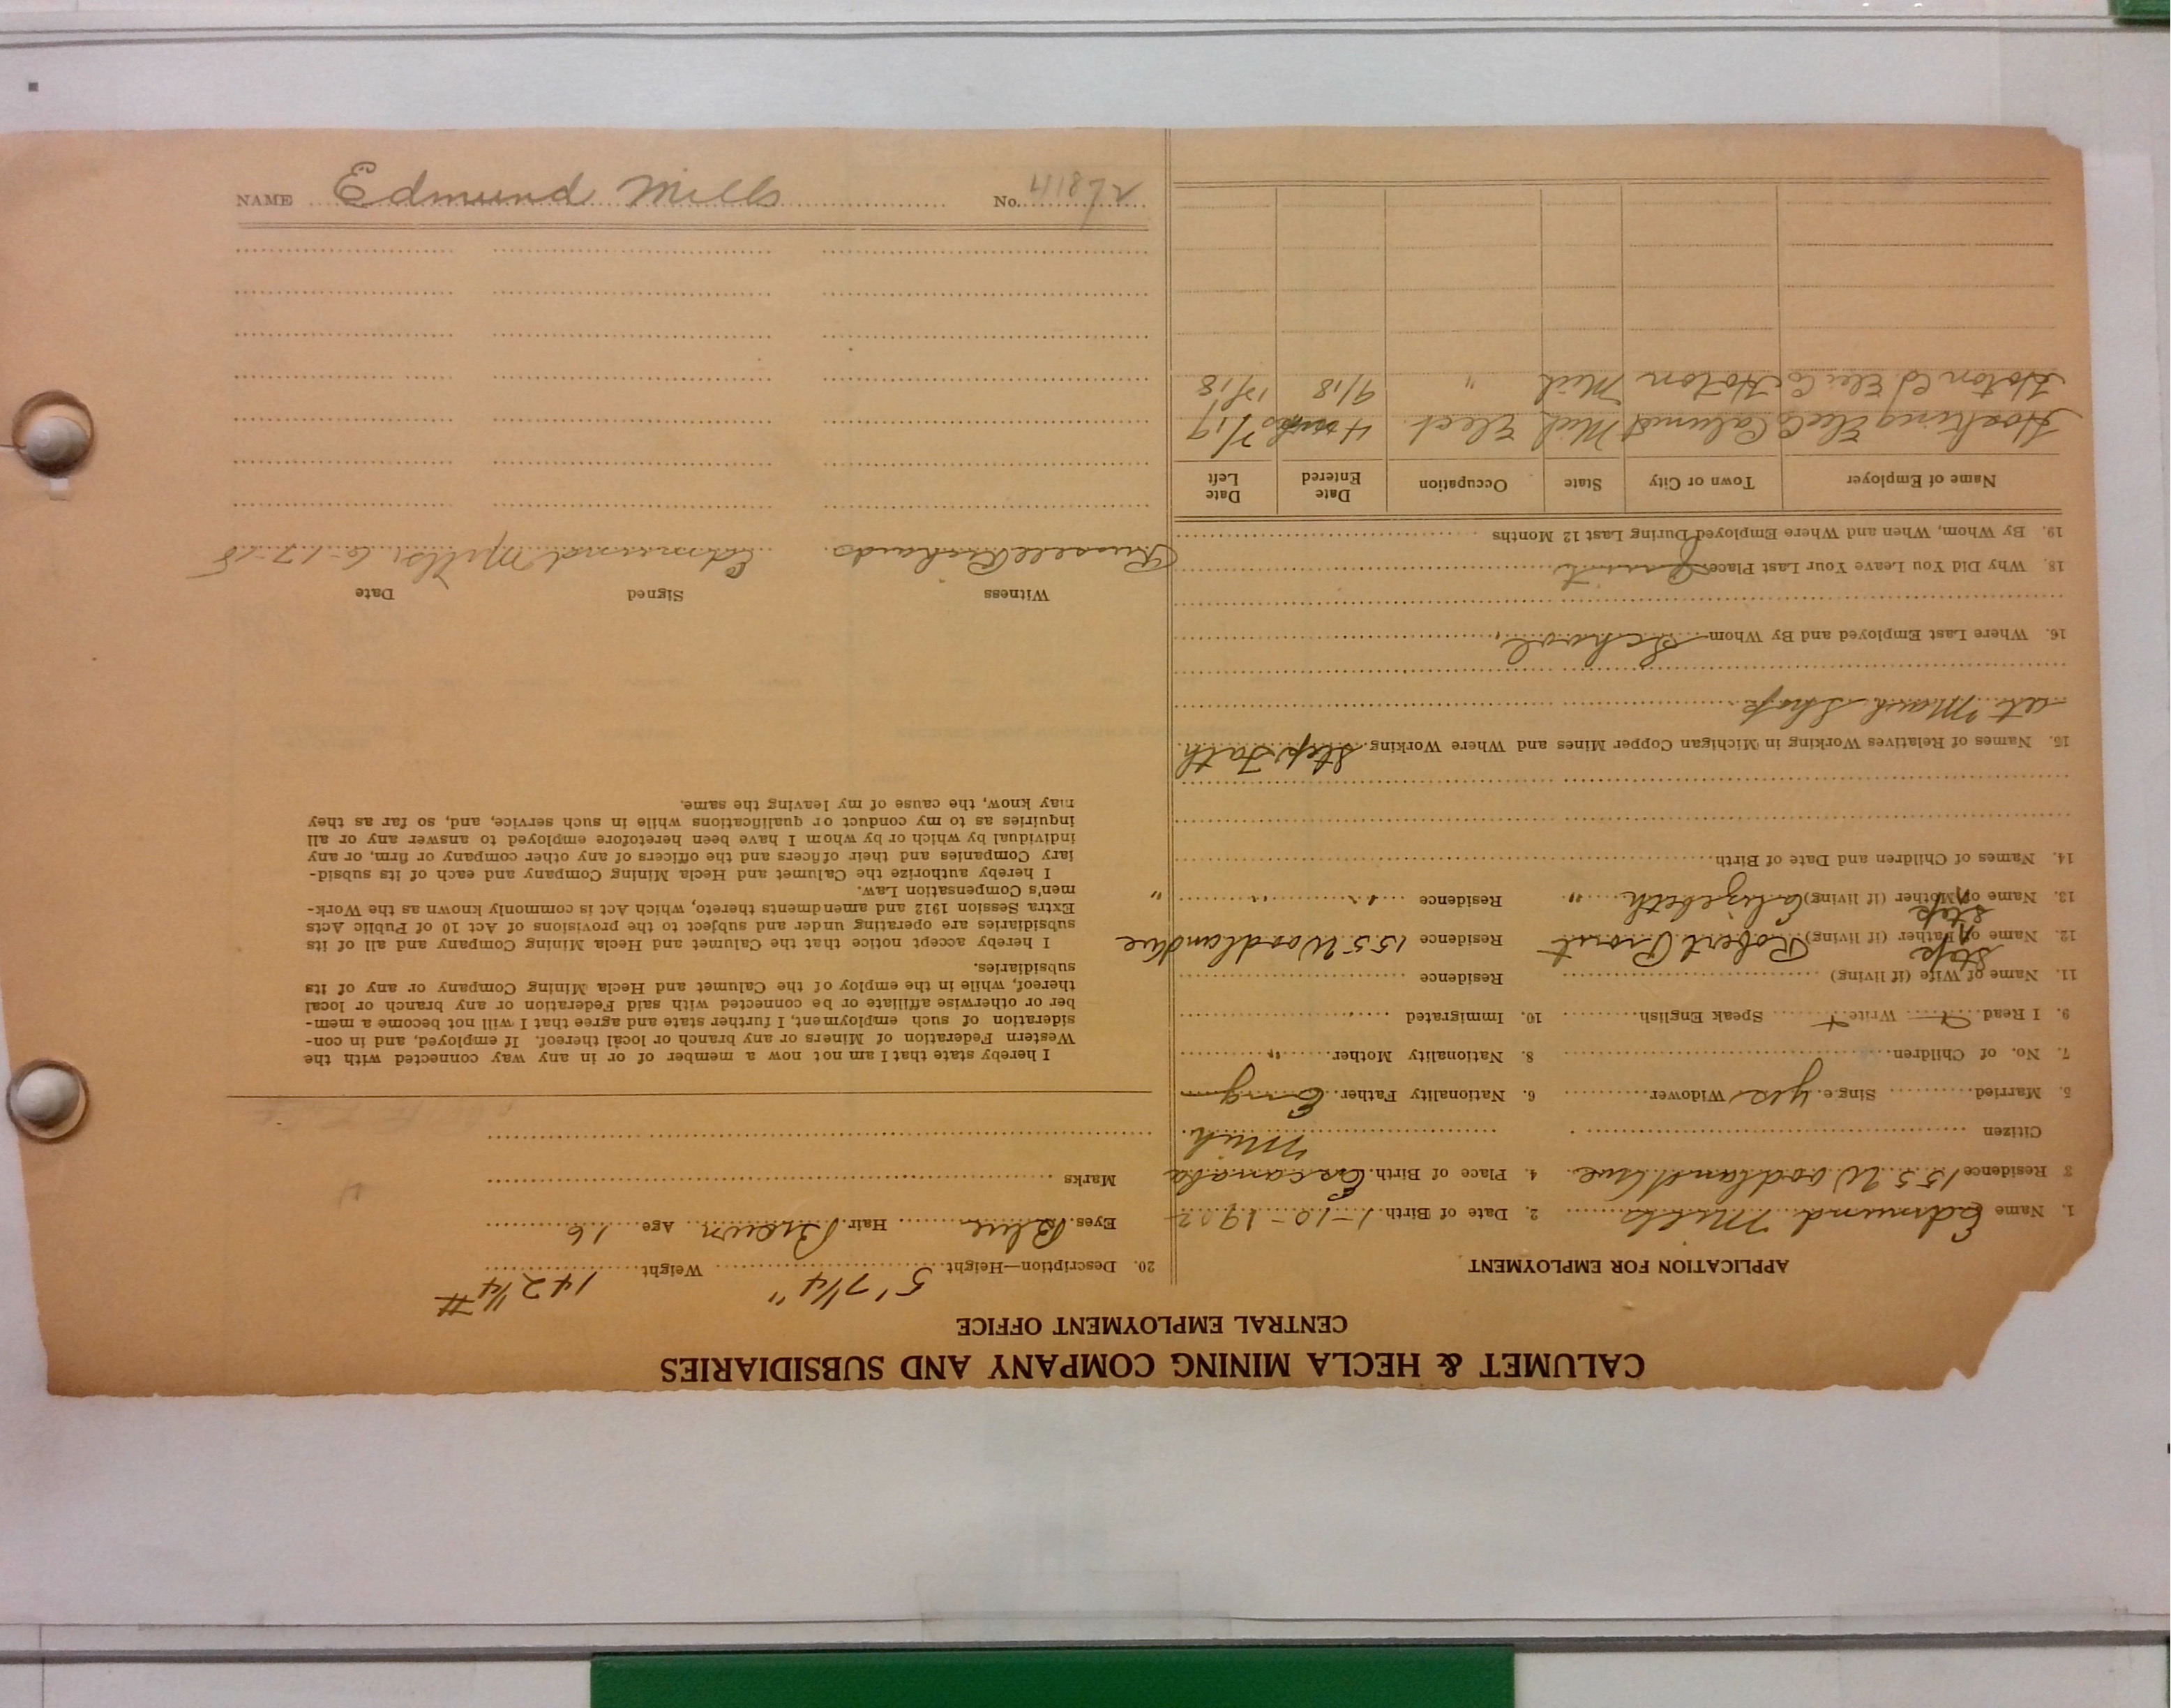 CALUMET & HECLA MINING COMPANY AND SUBSIDIARIES
CENTRAL EMPLOYMENT OFFICE
APPLICATION FOR EMPLOYMENT
1. Name Edmund Mills 2. Date of Birth 1-10-1902
3 Residence 155 Woodland Ave 4. Place of Birth Escanaba
Citizen Mich
5. Married Sing e. yes Widower 6. Nationality Father Eng
7. No. of Children 8. Nationality Mother "
9. I Read Write Speak English 10. Immigrated
11. Name of Wife (if living) Residence
Step
12. Name of Father (if living) Robert Residence 155 Woodland Ave
Step
13. Name of Mother (if living) Elizebeth " Residence " " "
14. Names of Children and Date of Birth
15. Names of Relatives Working in Michigan Copper Mines and Where Working Step Fath
at Mach Shop
16. Where Last Employed and By Whom School
18. Why Did You Leave Your Last Place Quit
19. By Whom, When and Where Employed During Last 12 Months
Name of Employer Town or City State Occupation Date Entered Date Left
Hosking Elec Co Calumet Mich Elect 4 mos 7/19
Hoton Co Elec Co Hoton Mich " 9/18 12/18
20. Description—Height 5' 7 1/4" Weight 142 1/4 #
Eyes Blue Hair Brown Age 16
Marks
I hereby state that I am not now a member of or in any way connected with the
Western Federation of Miners or any branch or local thereof. If employed, and in con-
sideration of such employment, I further state and agree that I will not become a mem-
ber or otherwise affiliate or be connected with said Federation or any branch or local
thereof, while in the employ of the Calumet and Hecla Mining Company or any of its
subsidiaries.
I hereby accept notice that the Calumet and Hecla Mining Company and all of its
subsidiaries are operating under and subject to the provisions of Act 10 of Public Acts
Extra Session 1912 and amendments thereto, which Act is commonly known as the Work-
men's Compensation Law.
I hereby authorize the Calumet and Hecla Mining Company and each of its subsid-
iary Companies and their officers and the officers of any other company or firm, or any
individual by which or by whom I have been heretofore employed to answer any or all
inquiries as to my conduct or qualifications while in such service, and, so far as they
may know, the cause of my leaving the same.
Witness Signed Date
Russell Richards Edmund Mills 6-17-18
NAME Edmund Mills No. 41872